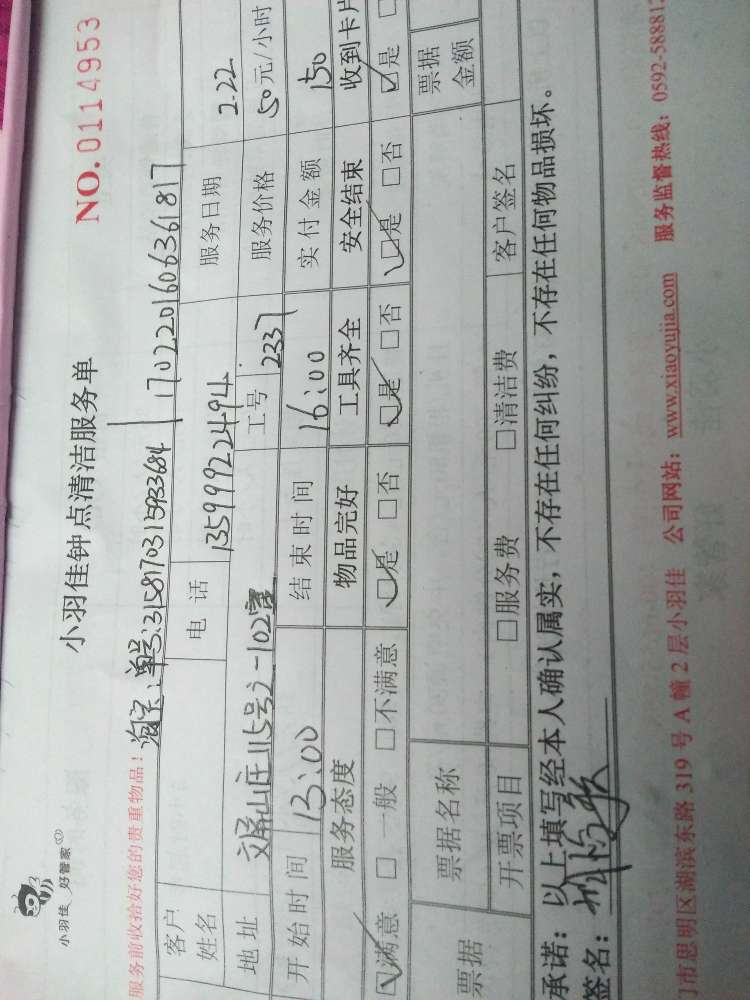 小羽佳 好管家
小羽佳钟点清洁服务单
NO.0114953
服务前收拾好您的贵重物品！淘宝：单号:3158170315933684 170220160636 1817
客户姓名 电话 13599922494 服务日期 2.22
地址 文屏山庄115号之-102室 工号 2337 服务价格 50元/小时
开始时间 13:00 结束时间 16:00 实付金额 150
服务态度 物品完好 工具齐全 安全结束 收到卡片
☑满意 □一般 □不满意 ☑是 □否 ☑是 □否 ☑是 □否 ☑是
票据 票据名称 票据金额
开票项目 □服务费 □清洁费 客户签名
承诺：以上填写经本人确认属实，不存在任何纠纷，不存在任何物品损坏。
签名：
门市思明区湖滨东路319号A幢2层小羽佳 公司网站：www.xiaoyujia.com 服务监督热线：0592-588812